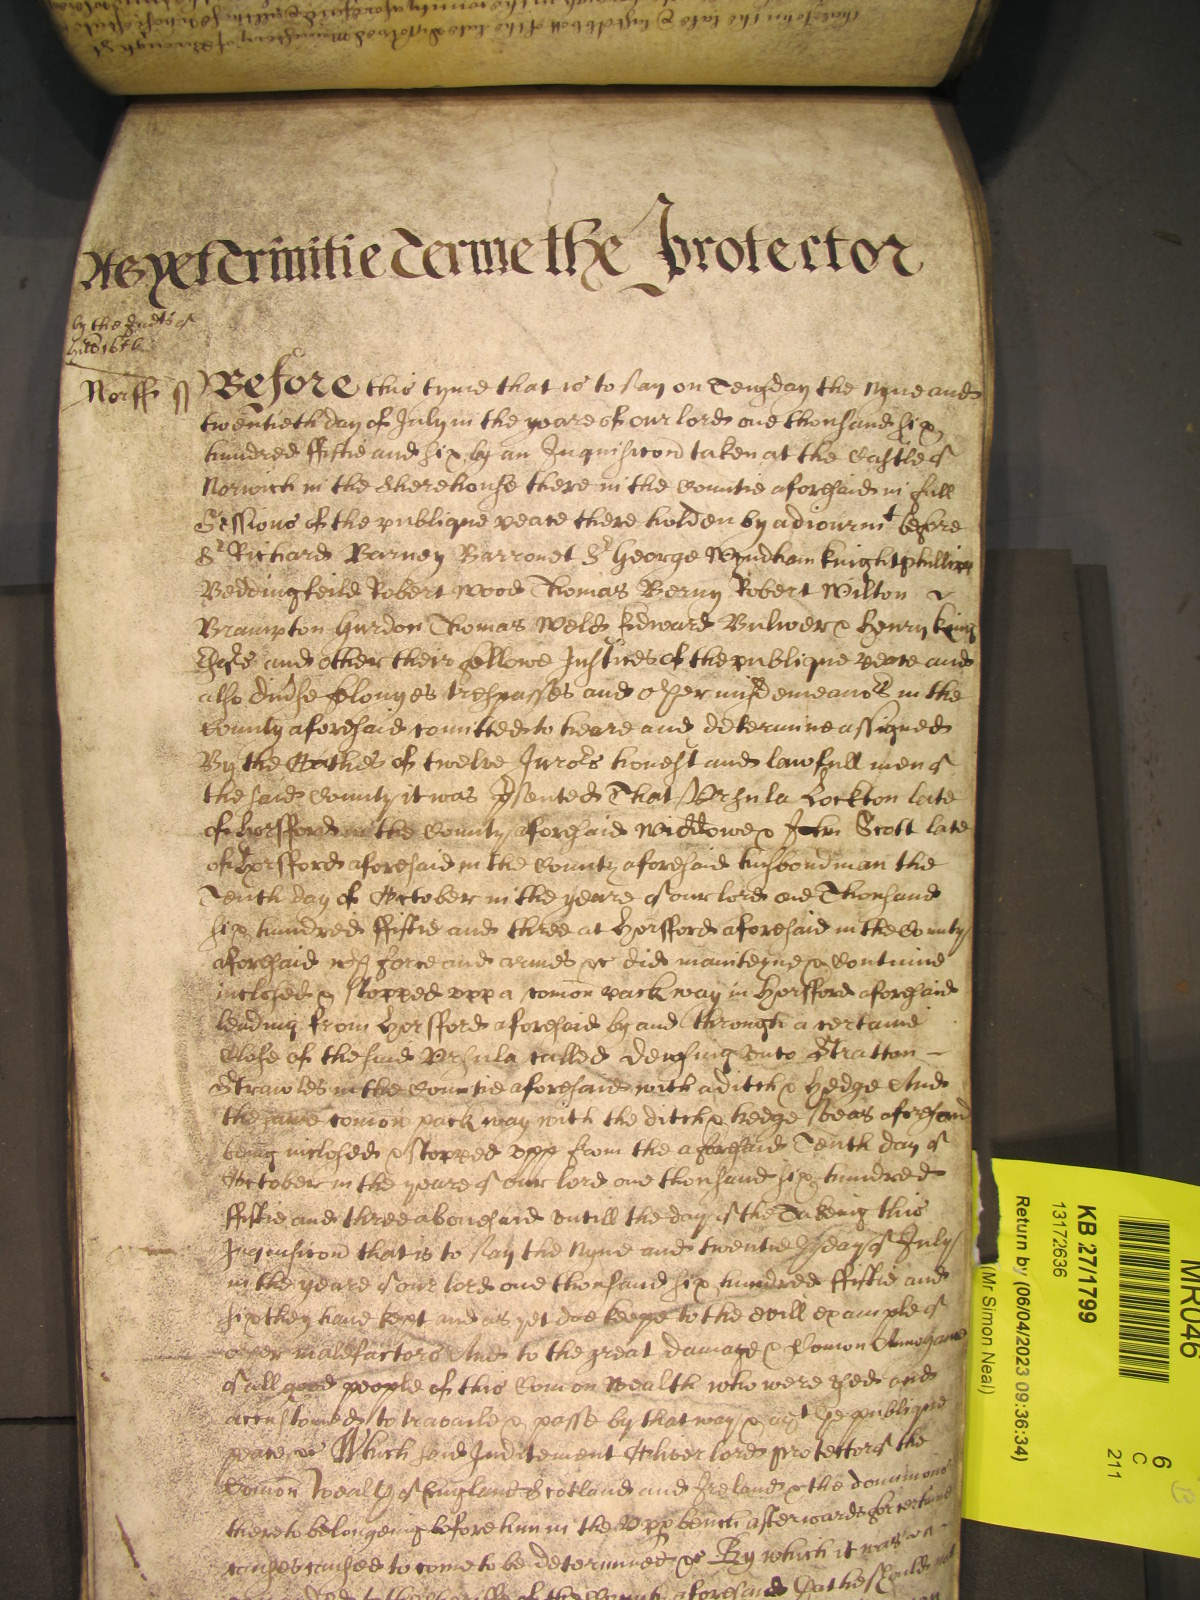 As yet Trinitie Terme the Protector
by the
Norff ss Before this tyme that is to say on Teusday the nyne and
twentieth day of July in the yeare of our lord one thousand six
hundred fiftie and six by an Inquisicon taken at the Castle of
Norwich in the Sherehouse there in the Countie aforesaid in full
Sessions of the publique peace there holden by adiournmt before
Sr Richard Barney Barronet Sr George Wyndham knight Phillipp
Beddingfeild Robert Wood Thomas Berny Robert Wilton
Brampton Gurdon Thomas Weld Edward Bulwer & Henry King
and other their fellowe Justices of the publique peace and
also divse felonyes trespasses and other misdemeanors in the
County aforesaid comitted to heare and determine assigned
By the Oathes of twelve Jurors honest and lawfull men of
the said County it was psented That Ursula Lockton late
of Horsford in the County aforesaid Widdowe & John Scott late
of Horsford aforesaid in the County aforesaid husbondman the
Tenth day of October in the yeare of our lord one Thousand
six hundred fiftie and three at Horsford aforesaid in the County
aforesaid wth force and armes &c did mainteyne & Continue
inclosed & stopped upp a comon pack way in Horsford aforesaid
leading from Horsford aforesaid by and through a certaine
Close of the said Ursula called unto Stratton
Strawles in the Countie aforesaid with a ditch & hedge And
the same comon pack way with the ditch & hedge soe as aforesaid
being inclosed & stopped upp from the aforesaid Tenth day of
October in the yeare of our lord one thousand six hundred
fiftie and three abovesaid untill the day of the Takeing this
Inquisicon that is to say the nyne and twentieth day of July
in the yeare of our lord one thousand six hundred fiftie and
six they have kept and as yet doe keepe to the evill example of
other malefactors And to the great damage & Comon Annoyance
of all good people of this Comon Wealth who were used and
accustomed to travaile & passe by that way & agt the publique
peace &c Which said Inditement Oliver lord Protector of the
Comon Wealth of England Scotland and Ireland & the dominions
thereto belongeing before him in the Upp bench afterwards for certaine
causes caused to come to be determined &c By which it was
to the Sheriffe of the County aforesaid That he should not
KB 27/1799
13172636
Return by (06/04/2023 09:36:34)
(Mr Simon Neal)
MR046
6
C
211